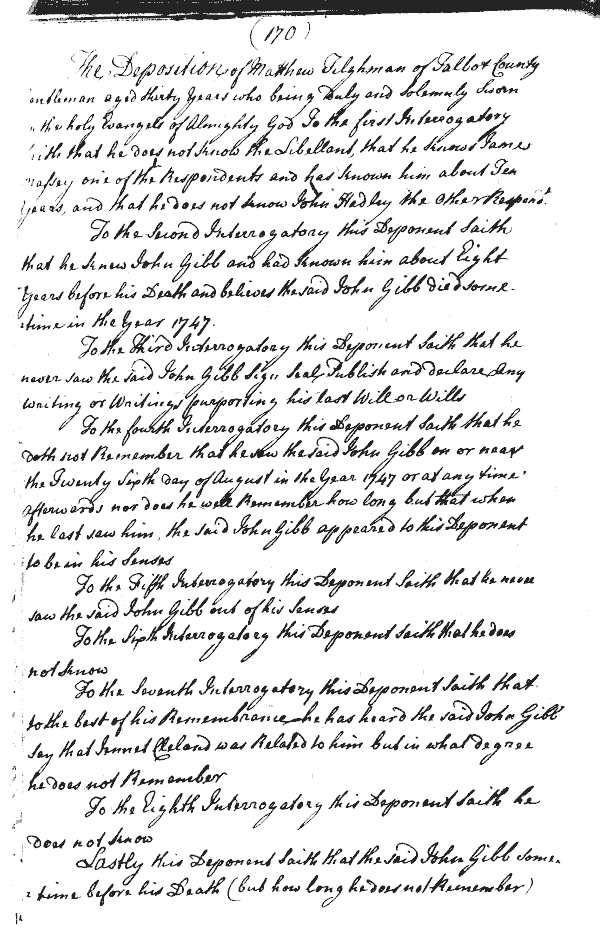 (170)
The Deposition of Matthew Tilghman of Talbot County
entleman aged thirty Years who being Duly and Solemnly Sworn
n the holy Evangels of Almighty God To the first Interrogatory
aith that he does not know the Libellant, that he knows James
assey one of the Respondents and has known him about Ten
Years, and that he does not know John Hadley the other Respond.t
To the Second Interrogatory this Deponent Saith
that he knew John Gibb and had known him about Eight
Years before his Death and believes the said John Gibb died some-
-time in the Year 1747.
To the Third Interrogatory this Deponent saith that he
never saw the said John Gibb Sign Seal, Publish and declare any
writing or Writings purporting his last Will or Wills
To the fourth Interrogatory this Deponent saith that he
doth not Remember that he saw the said John Gibb on or near
the Twenty Sixth day of August in the Year 1747 or at any time
afterwards nor does he well Remember how long but that when
he last saw him, the said John Gibb appeared to this Deponent
to be in his Senses
To the Fifth Interrogatory this Deponent Saith that he never
saw the said John Gibb out of his Senses
To the Sixth Interrogatory this Deponent saith that he does
not know
To the Seventh Interrogatory this Deponent Saith that
to the best of his Remembrance he has heard the said John Gibb
say that Jennet Cleland was Related to him but in what degree
he does not Remember
To the Eighth Interrogatory this Deponent Saith he
does not know
Lastly this Deponent Saith that the said John Gibb some-
-time before his Death (but how long he does not Remember)